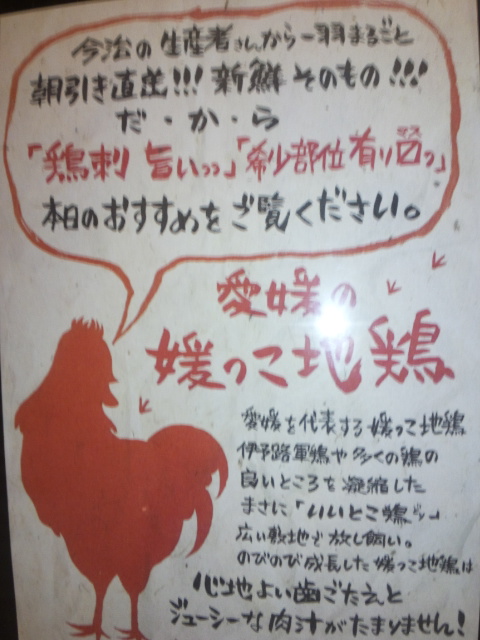 今治の生産者さんから一羽まるごと
朝引き直送!!! 新鮮そのもの!!!
だ・か・ら
「鶏刺 旨いっっ」「希少部位有り〼っ」
マス
本日のおすすめをご覧ください。
愛媛の
媛っこ地鶏
愛媛を代表する媛っこ地鶏
伊予路軍鶏や多くの鶏の
良いところを凝縮した
まさに「いいとこ鶏
広い敷地で放し飼い。
のびのび成長した媛っこ地鶏は
心地よい歯ごたえと
ジューシーな肉汁がたまりません!